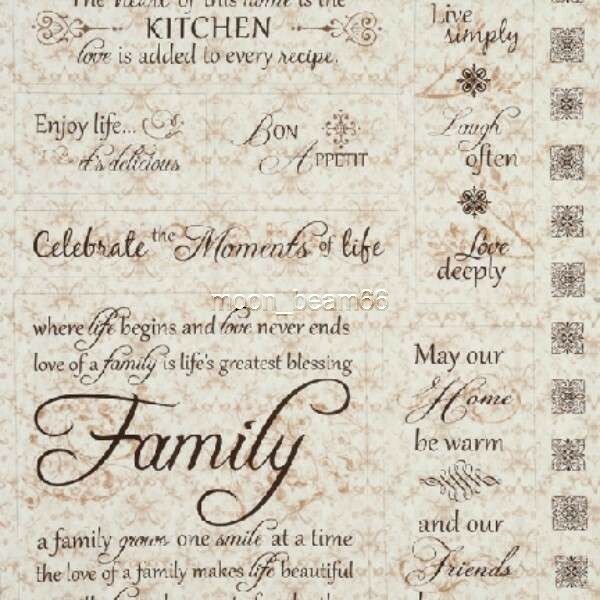 The heart of this home is the
KITCHEN
love is added to every recipe.
Enjoy life...
it's delicious
BON
APPETIT
Celebrate the Moments of life
moon_beam66
where life begins and love never ends
love of a family is life's greatest blessing
Family
a family grows one smile at a time
the love of a family makes life beautiful
Live
simply
Laugh
often
Love
deeply
May our
Home
be warm
and our
Friends